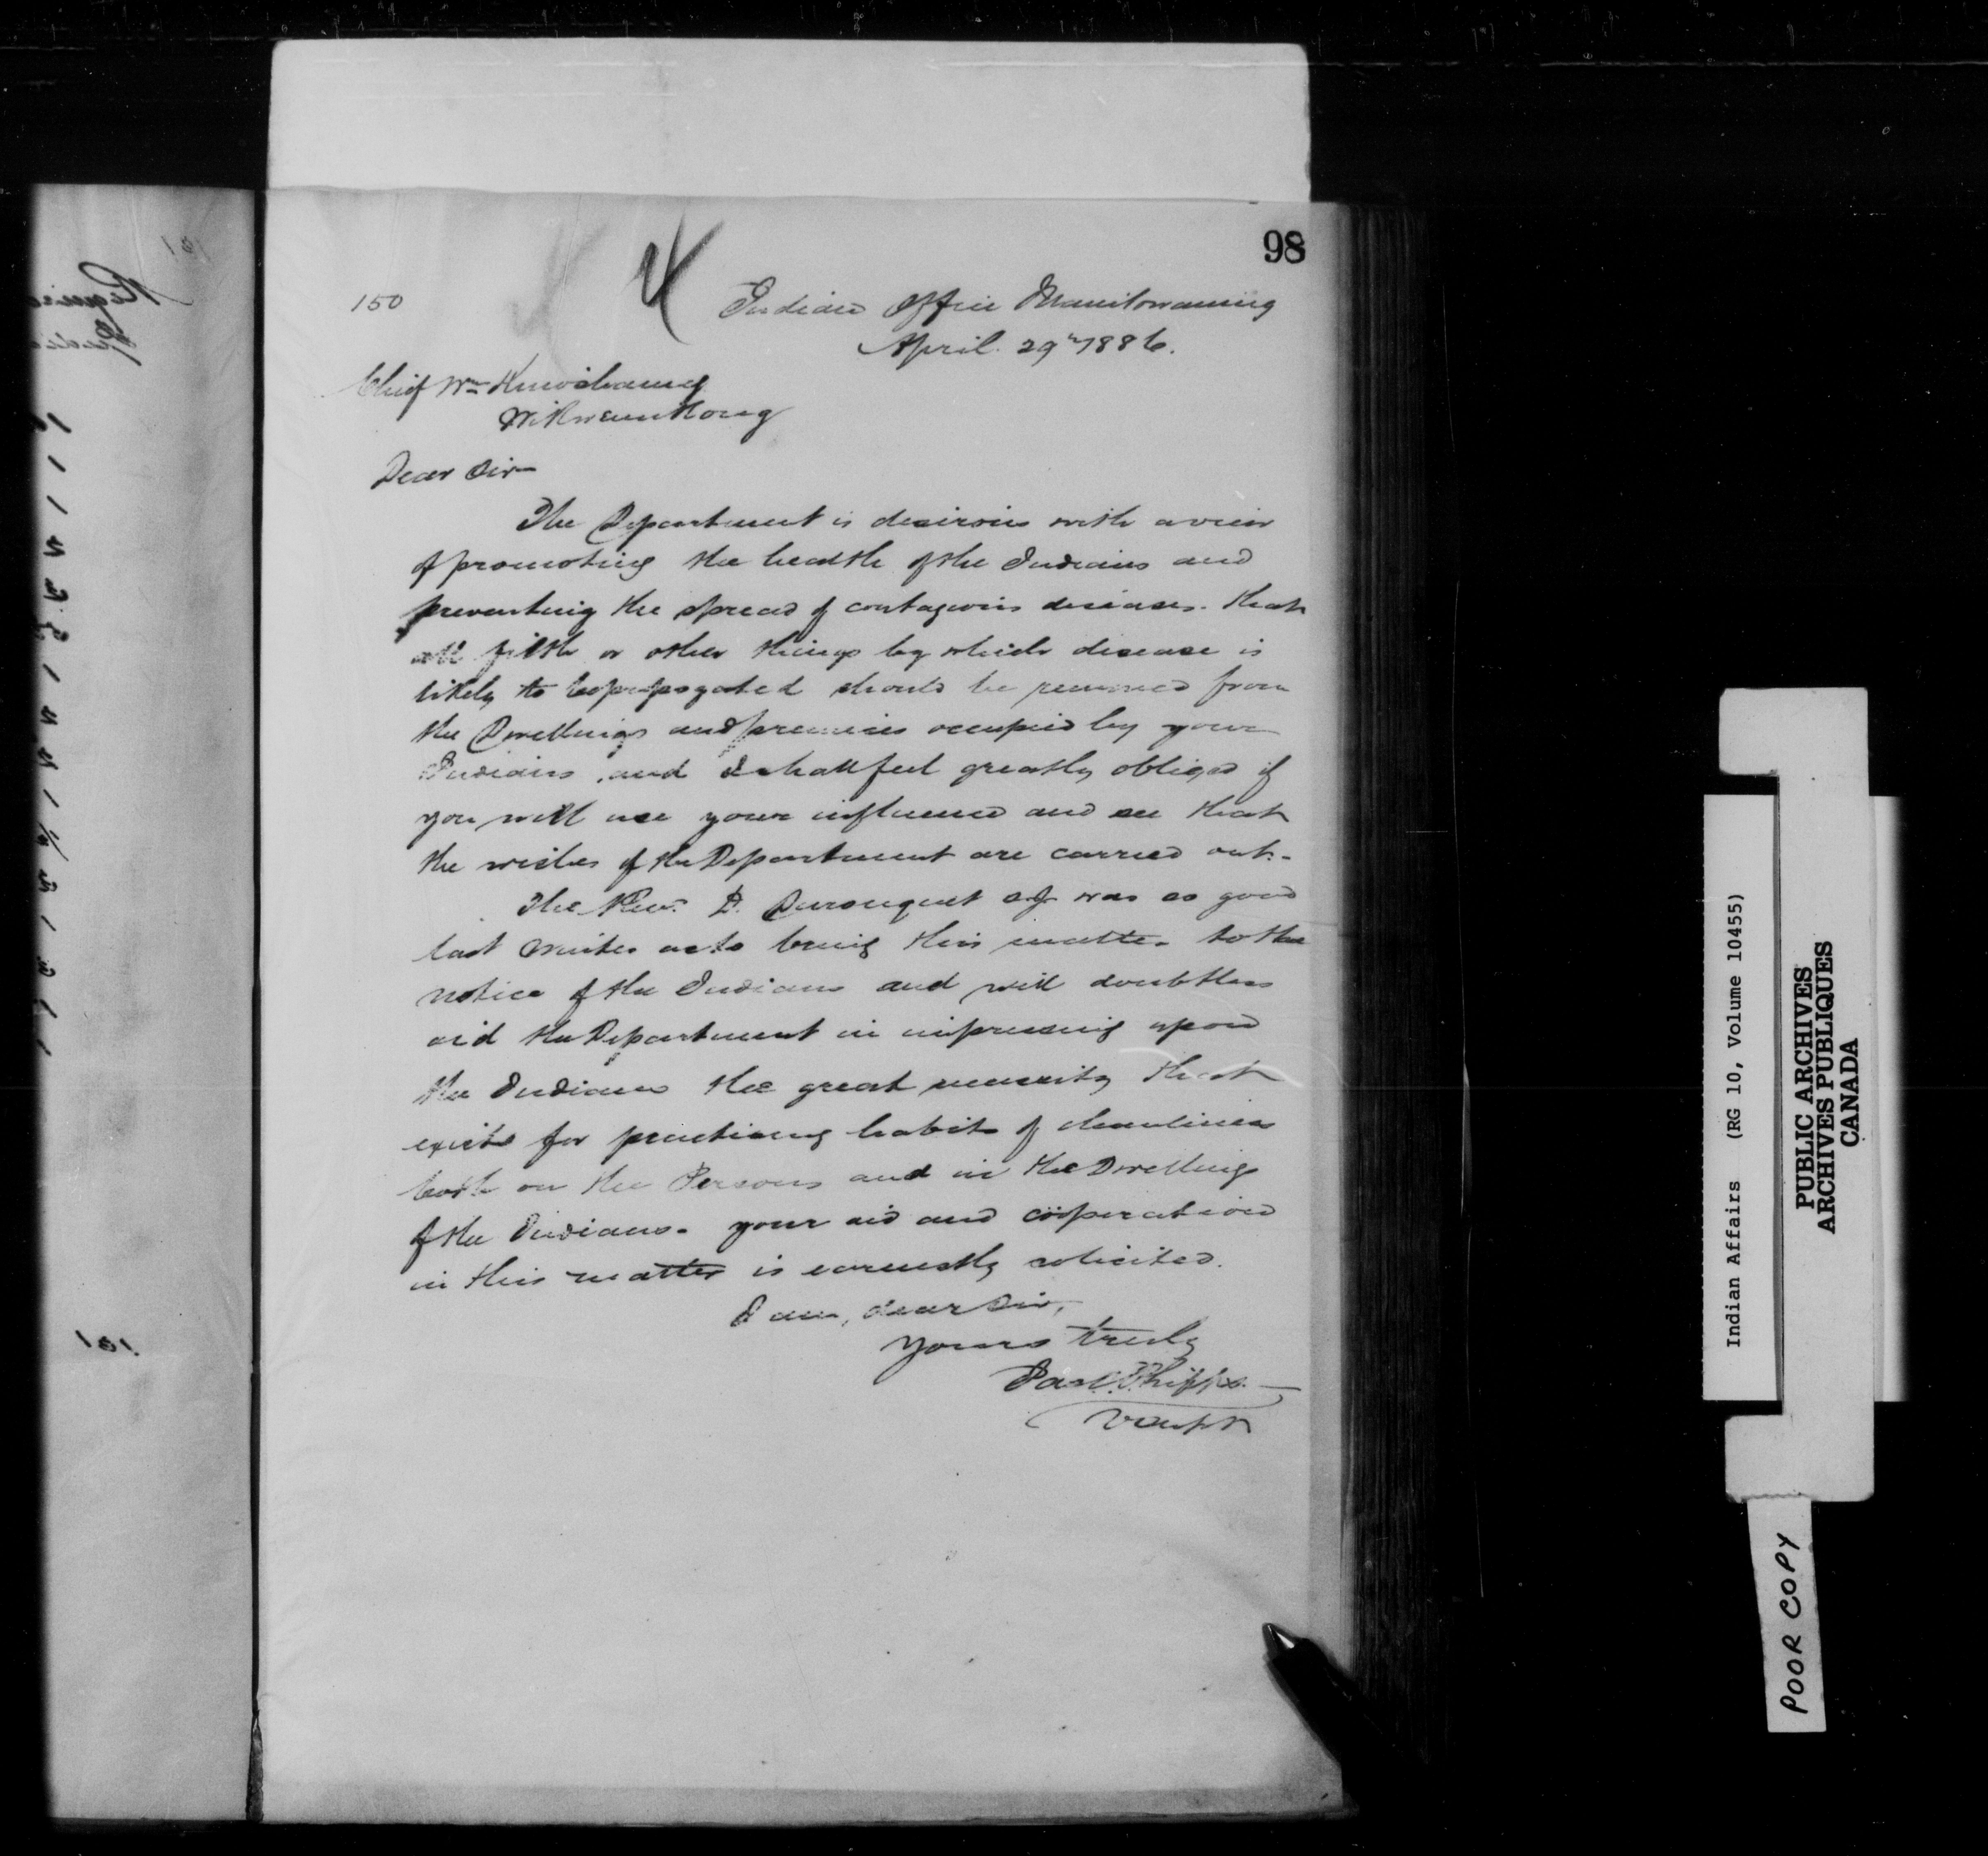 98
150
Indian Office Manitowaning
April 29th 1886.
Chief Wm Kinoshameg
Wikwemikong
Dear Sir
The Department is desirous with a view
of promoting the health of the Indians and
preventing the spread of contagious diseases. that
all filth or other things by which disease is
likely to be propagated should be removed from
the Dwellings and premises occupied by your
Indians, and I shall feel greatly obliged if
you will use your influence and see that
the wishes of the Department are carried out.
The Rev. D. Duronquet S.J. was so good
last Winter as to bring this matter to the
notice of the Indians and will doubtless
aid the Department in impressing upon
the Indians the great necessity that
exists for practising habits of cleanliness
both on the Persons and in the Dwellings
of the Indians. your aid and coöperation
in this matter is earnestly solicited.
I am, dear Sir,
Yours truly
Jas. C. Phipps.
V Supt
Indian Affairs (RG 10, Volume 10455)
PUBLIC ARCHIVES
ARCHIVES PUBLIQUES
CANADA
POOR COPY